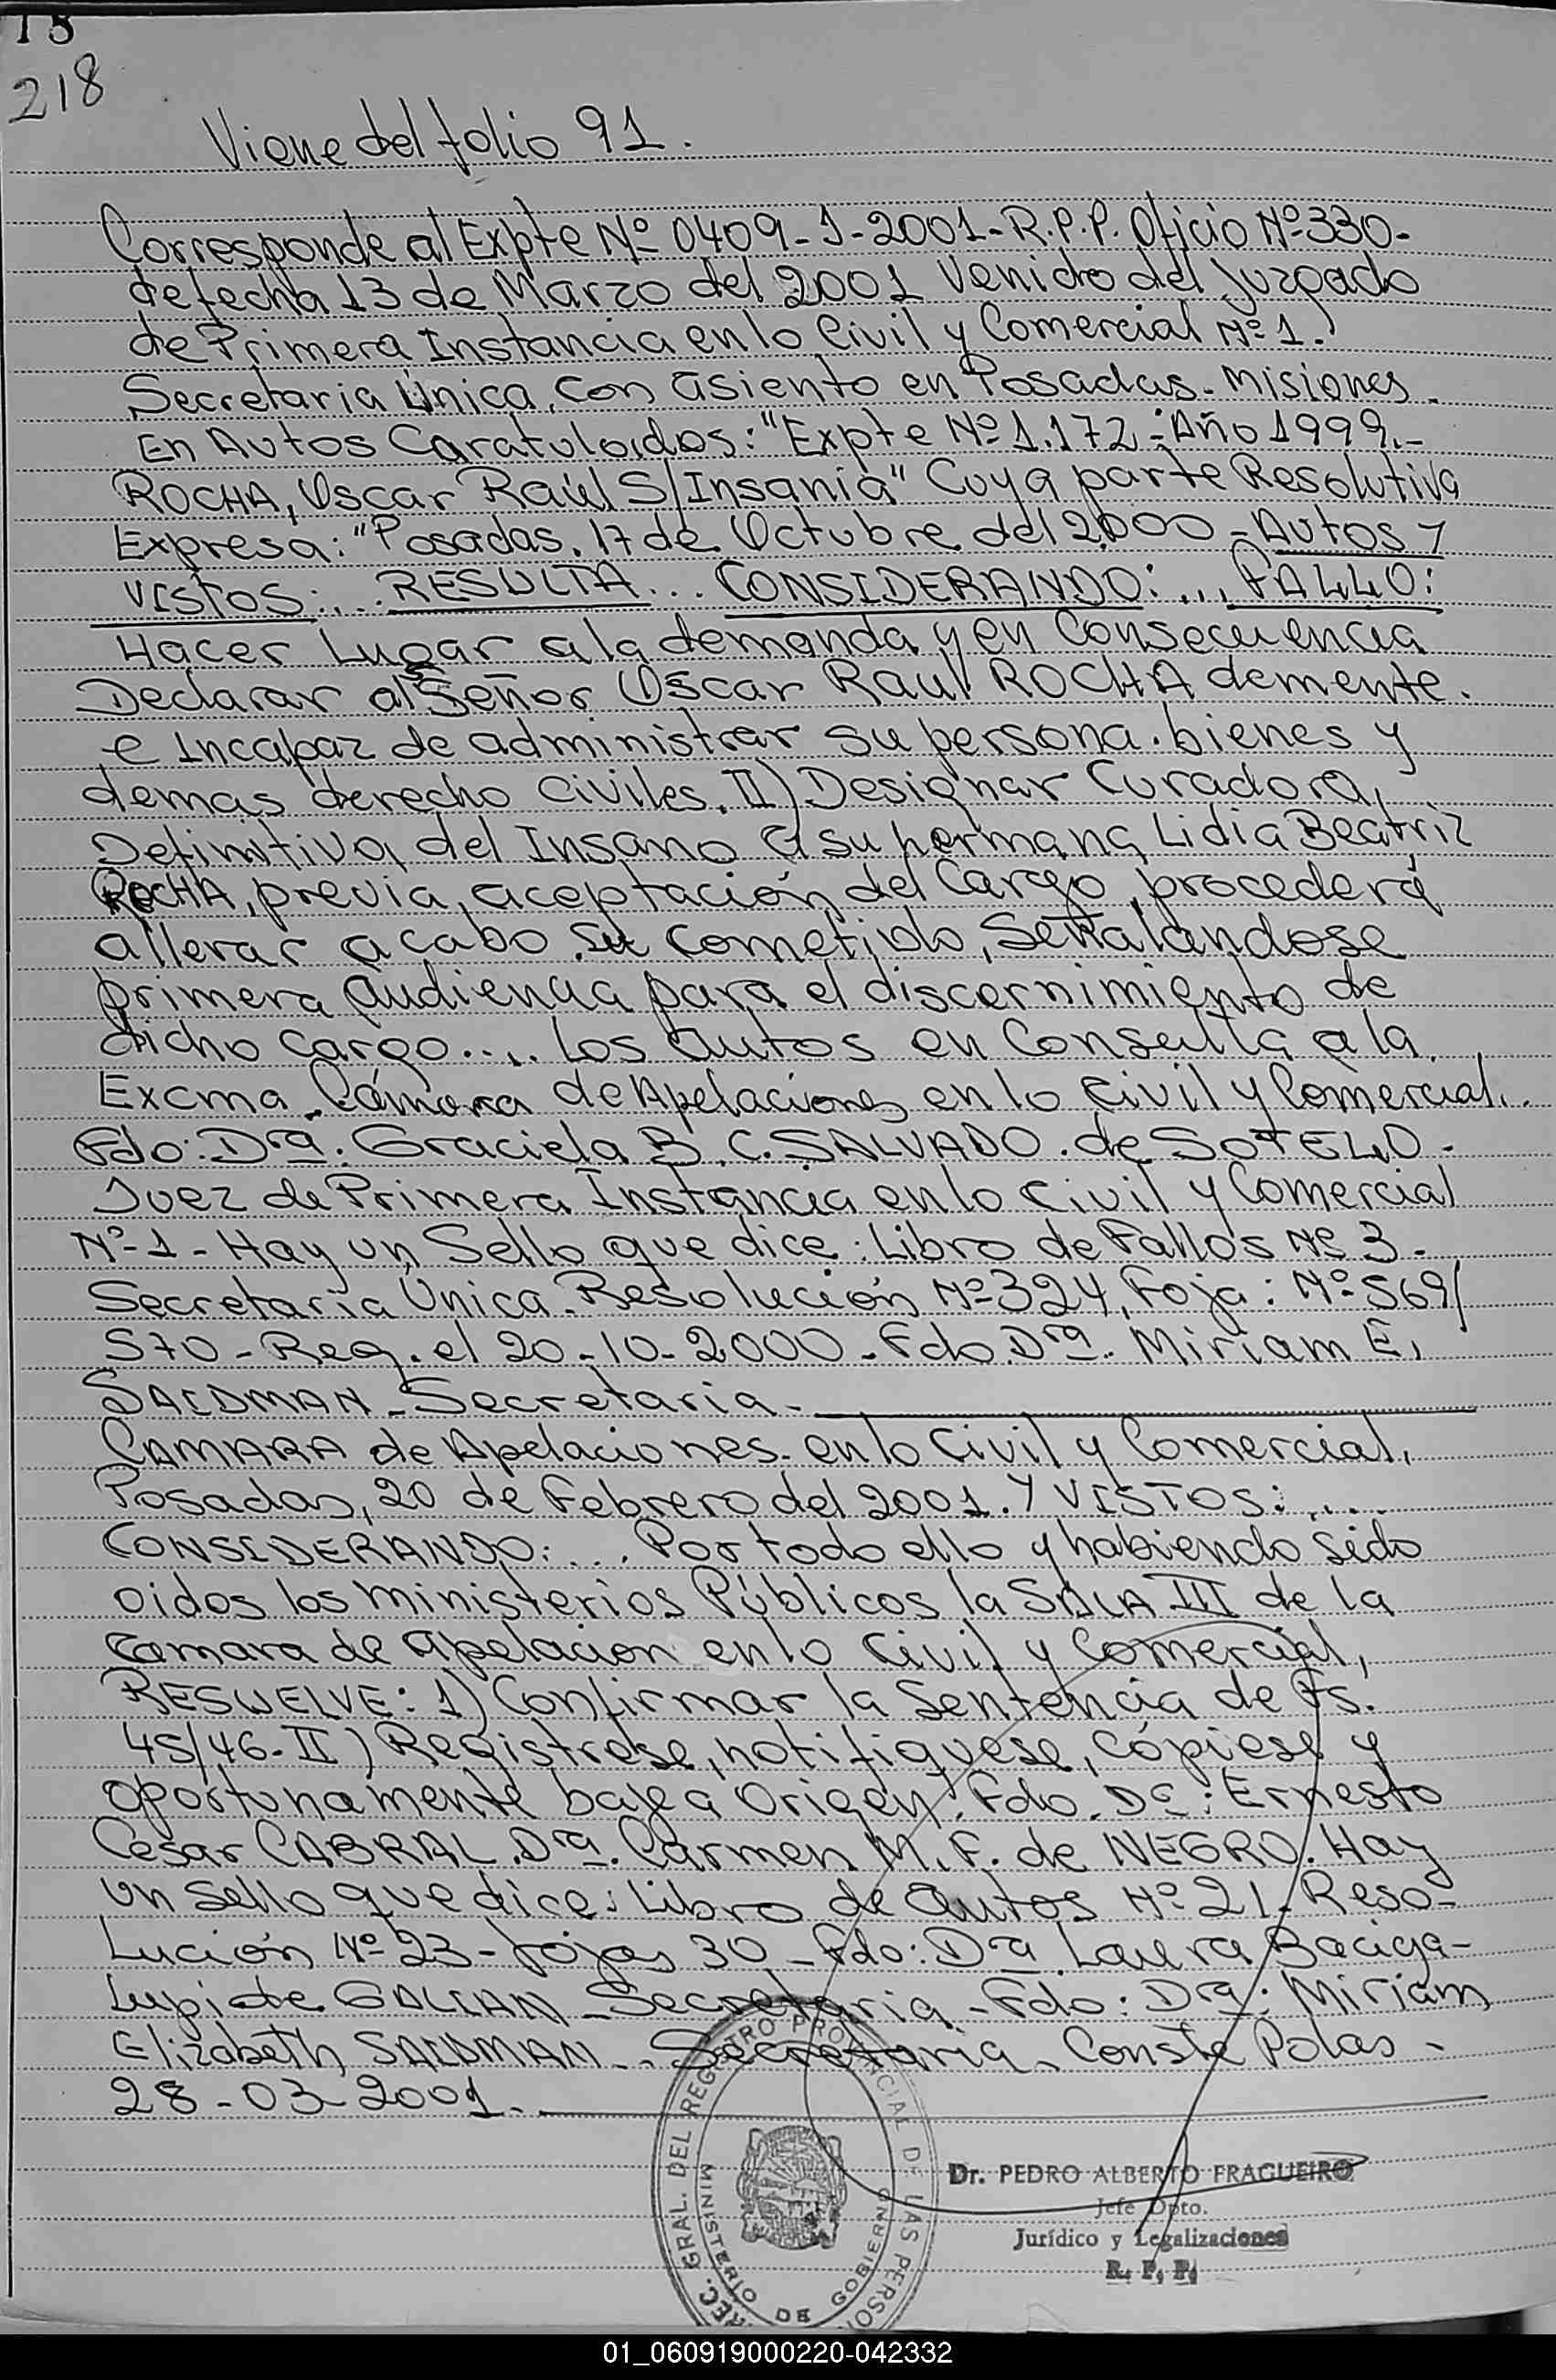 218
Viene del folio 91.
Corresponde al Expte Nº 0409-J-2001-R.P.P. Oficio Nº 330-
de fecha 13 de Marzo del 2001 venido del juzgado
de Primera Instancia en lo Civil y Comercial Nº 1.
Secretaria Única, con asiento en Posadas - Misiones.
En Autos Caratulados: "Expte Nº 1.172 - Año 1999.-
ROCHA, Oscar Raúl S/Insania" Cuya parte Resolutiva
Expresa: "Posadas, 17 de Octubre del 2.000 - Autos Y
VISTOS:... RESULTA... CONSIDERANDO:... FALLO:
Hacer Lugar a la demanda y en Consecuencia
Declarar al Señor Oscar Raul ROCHA demente.
e Incapaz de administrar su persona. bienes y
demas derecho civiles. II) Designar Curadora,
Definitiva del Insano a su hermana Lidia Beatriz
ROCHA, previa aceptación del Cargo procederá
a llevar a cabo su cometido, Señalandose
primera audiencia para el discernimiento de
dicho cargo.... los autos en Consulta a la
Excma. Cámara de Apelaciones en lo Civil y Comercial...
Fdo: Dra. Graciela B. C. SALVADO. de SOTELO.
Juez de Primera Instancia en lo Civil y Comercial
Nº-1- Hay un Sello que dice: Libro de Fallos Nº 3.
Secretaría Única. Resolución Nº 324, Foja: Nº 569/
570 - Reg. el 20-10-2000 - Fdo. Dra. Miriam E.
SALDMAN - Secretaria -
CAMARA de Apelaciones. en lo Civil y Comercial.
Posadas, 20 de Febrero del 2001. Y VISTOS:....
CONSIDERANDO:... Por todo ello y habiendo sido
oidos los ministerios Públicos la SALA III de la
Camara de apelacion en lo Civil y Comercial,
RESUELVE: 1) Confirmar la Sentencia de Fs.
45/46- II) Registrese, notifiquese, cópiese y
oportunamente baje a Origen. Fdo. Dr: Ernesto
Cesar CABRAL. Dra. Carmen M. F. de NEGRO. Hay
un Sello que dice: Libro de autos Nº 21. Reso-
Lución Nº 23 - fojas 30 - Fdo: Dra Laura Baciga-
lupi de GALIAN - Secretaria - Fdo: Dra: Miriam
Elizabeth SALDMAN.. Secretaria. Conste Pdas -
28-03-2001.
REC. GRAL. DEL REGISTRO PROVINCIAL DE LAS PERSO
MINISTERIO DE GOBIERNO
Dr. PEDRO ALBERTO FRAGUEIRO
Jefe Dpto.
Jurídico y Legalizaciones
R. P. P.
01_060919000220-042332